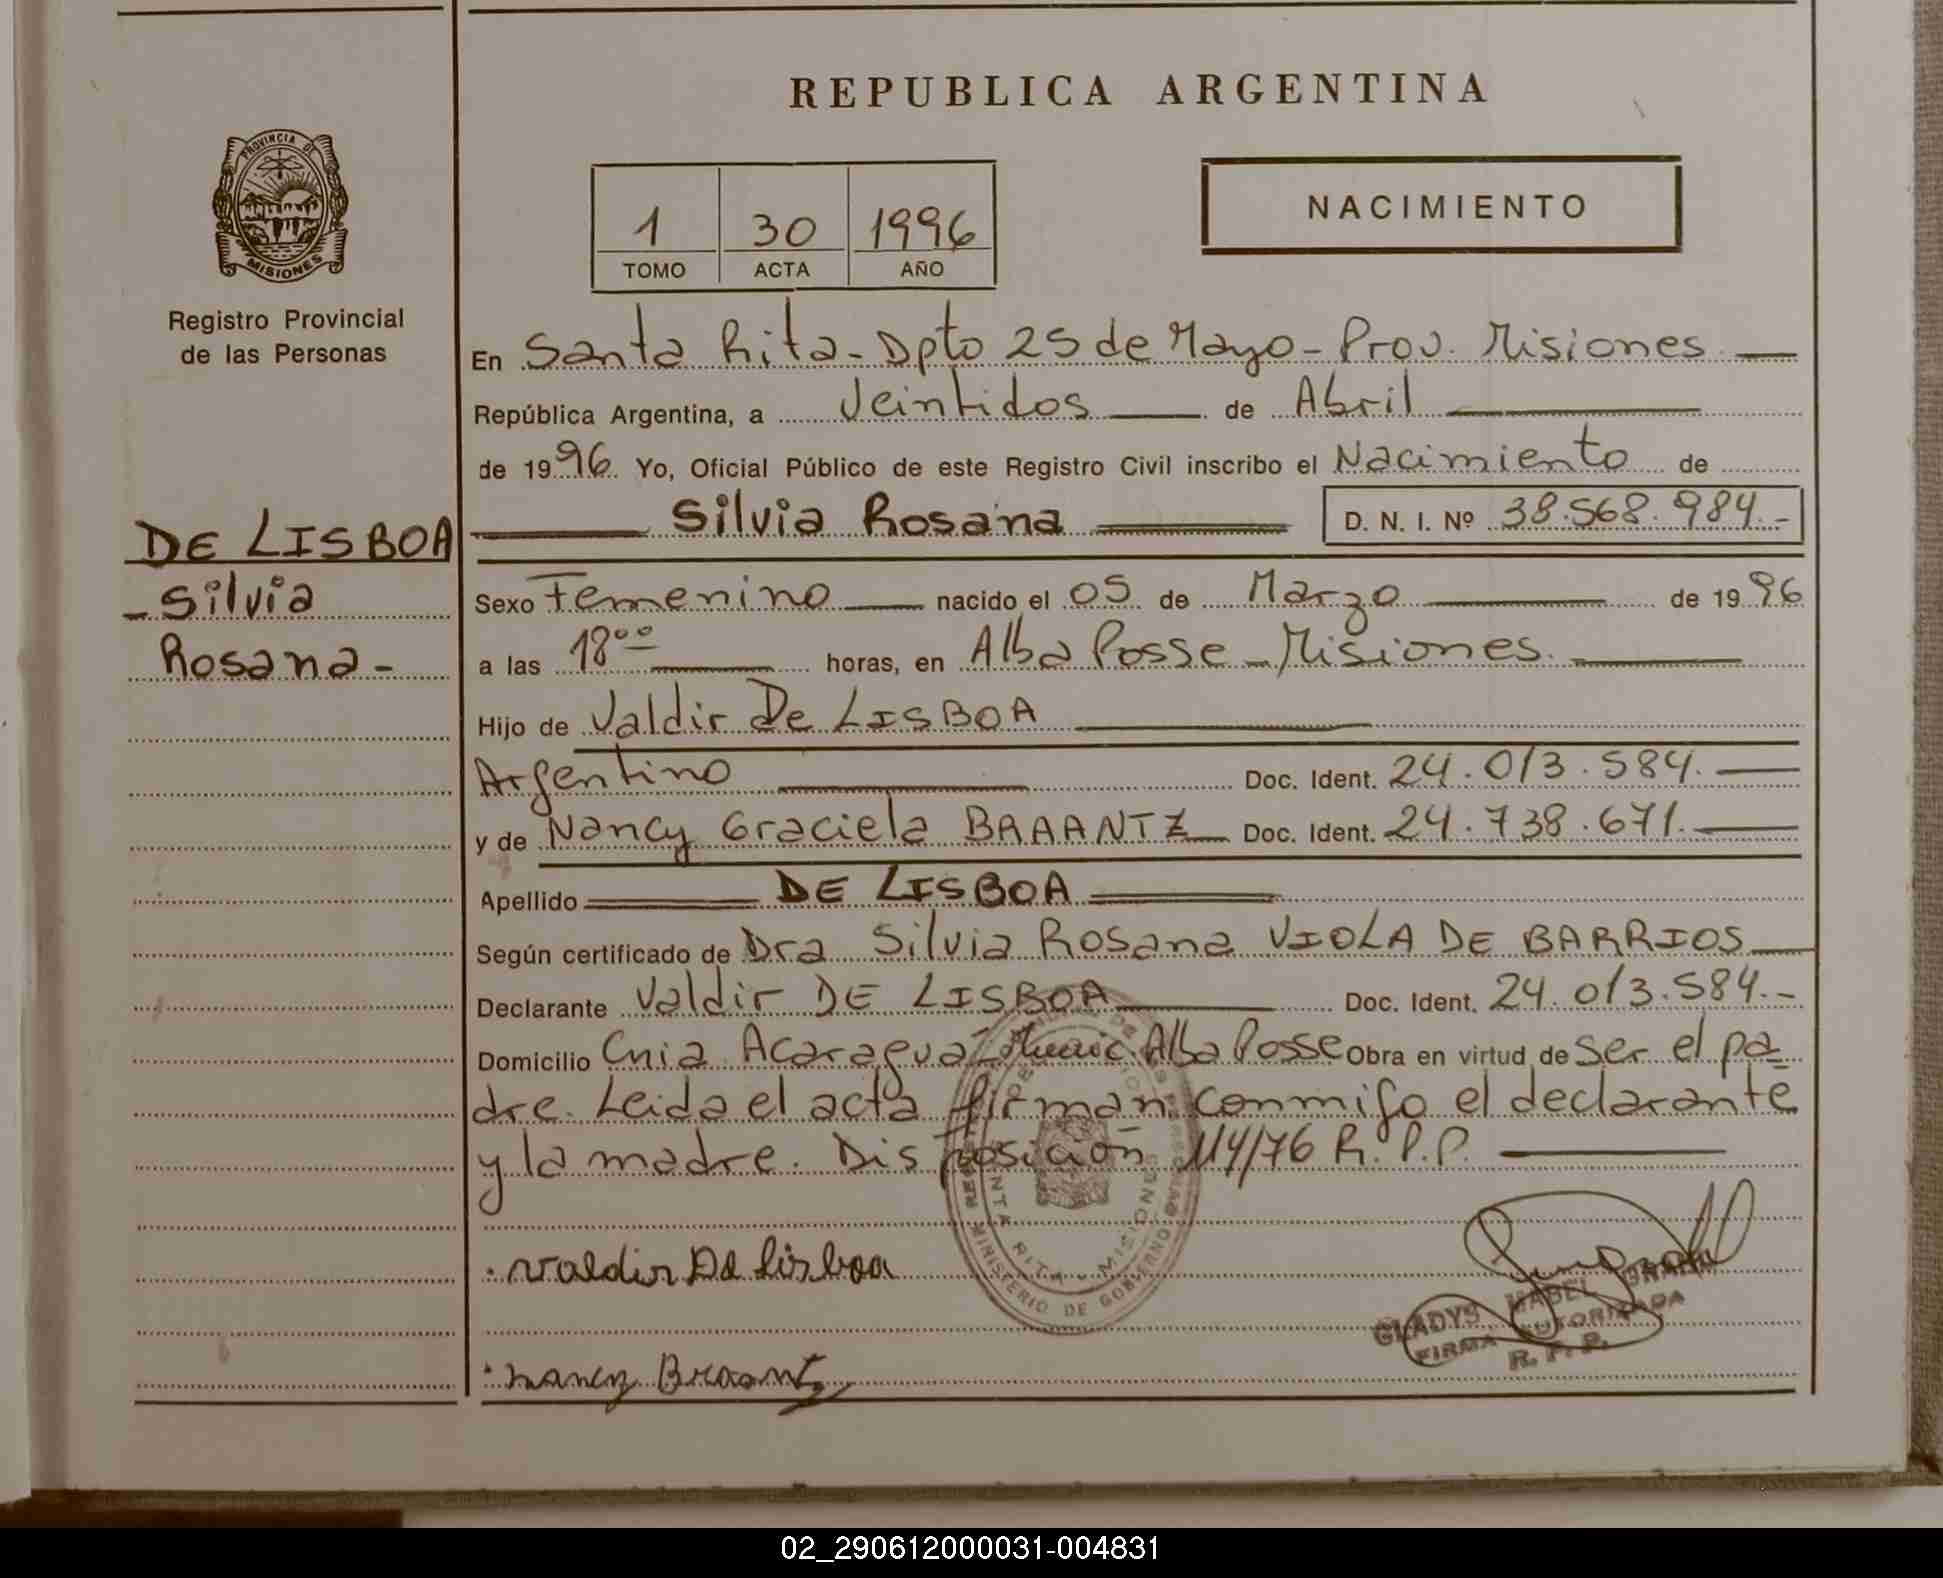 REPUBLICA ARGENTINA
PROVINCIA DE
MISIONES
Registro Provincial
de las Personas
NACIMIENTO
1 30 1996
TOMO ACTA AÑO
En Santa Rita - Dpto 25 de Mayo - Prov. Misiones
República Argentina, a Veintidos de Abril
de 1996 Yo, Oficial Público de este Registro Civil inscribo el Nacimiento de
Silvia Rosana D. N. I. Nº 38.568.984.-
DE LISBOA
- Silvia
Rosana -
Sexo Femenino nacido el 05 de Marzo de 1996
a las 18°° horas, en Alba Posse - Misiones.
Hijo de Valdir De LISBOA
Argentino Doc. Ident. 24.013.584.
y de Nancy Graciela BRAANTZ Doc. Ident. 24.738.671.
Apellido DE LISBOA
Según certificado de Dra Silvia Rosana VIOLA DE BARRIOS
Declarante Valdir DE LISBOA Doc. Ident. 24.013.584.-
Domicilio Cnia Acaragua - Munic. Alba Posse Obra en virtud de ser el pa-
dre. Leida el acta firman conmigo el declarante
y la madre. Disposición 114/76 R.P.P.
SANTA RITA - MISIONES
MINISTERIO DE GOBIERNO
Valdir De Lisboa
GLADYS MABEL
FIRMA AUTORIZADA
R. P. P.
Nancy Braantz
02_290612000031-004831